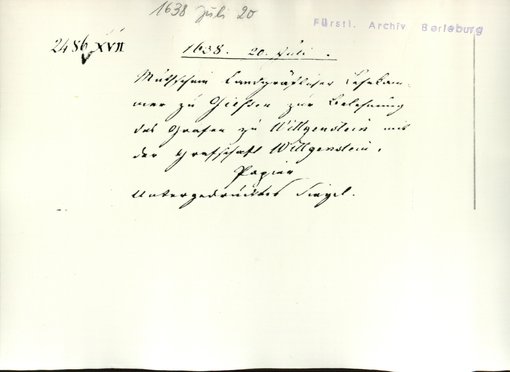 1638 Juli 20
Fürstl. Archiv Berleburg
2486 XVII
1638. 20. Juli.
Muthschein Landgräflicher Lehnkam-
mer zu Giessen zur Belehnung
des Grafen zu Wittgenstein mit
der Grafschaft Wittgenstein.
Papier
Untergedrücktes Siegel.